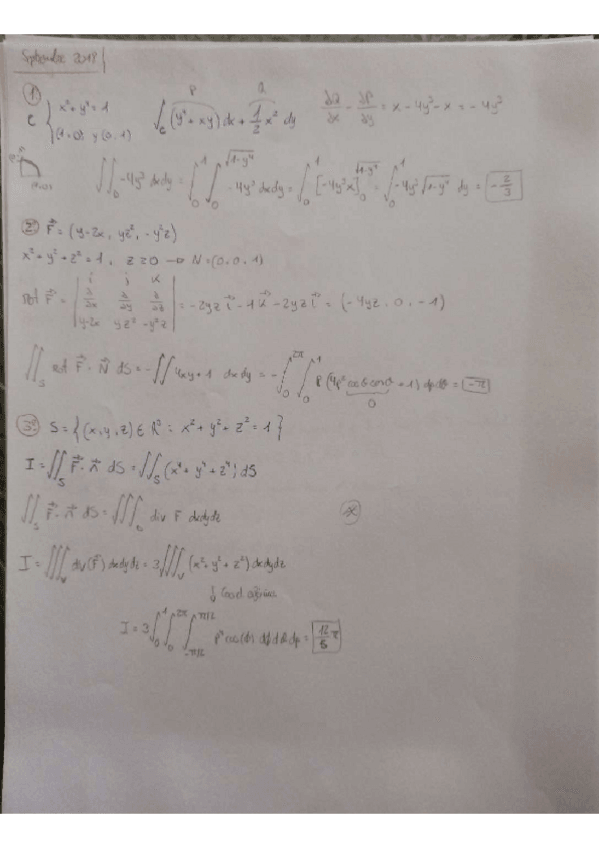 Septiembre 2018
① C { x² + y⁴ = 1
(1,0); y (0,1)
∫_C (y⁴ + xy) dx + 1/2 x² dy
P Q
∂Q/∂x - ∂P/∂y = x - 4y³ - x = -4y³
∬_D -4y³ dxdy = ∫₀¹ ∫₀^√(1-y⁴) -4y³ dxdy = ∫₀¹ [-4y³x]₀^√(1-y⁴) = ∫₀¹ -4y³ √(1-y⁴) dy = -2/3
② F⃗ = (y-2x, yz², -y²z)
x² + y² + z² = 1, z≥0 → N = (0,0,1)
rot F⃗ = | i j k ; ∂/∂x ∂/∂y ∂/∂z ; y-2x yz² -y²z | = -2yz i⃗ - 1 k⃗ - 2yz i⃗ = (-4yz, 0, -1)
∬_S rot F⃗ · N⃗ dS = -∬ 4xy + 1 dxdy = -∫₀^2π ∫₀¹ ρ (4ρ² cosθ senθ + 1) dρdθ = -π
0
③ S = {(x,y,z) ∈ R³ : x² + y² + z² = 1}
I = ∬_S F⃗ · n⃗ dS = ∬_S (x⁴ + y⁴ + z⁴) dS
∬_S F⃗ · n⃗ dS = ∭_D div F dxdydz
I = ∭_V div(F⃗) dxdydz = 3∭_V (x² + y² + z²) dxdydz
↓ Coord esféricas
I = 3∫₀¹ ∫₀^2π ∫_-π/2^π/2 ρ⁴ cosφ dφ dθ dρ = 12/5 π